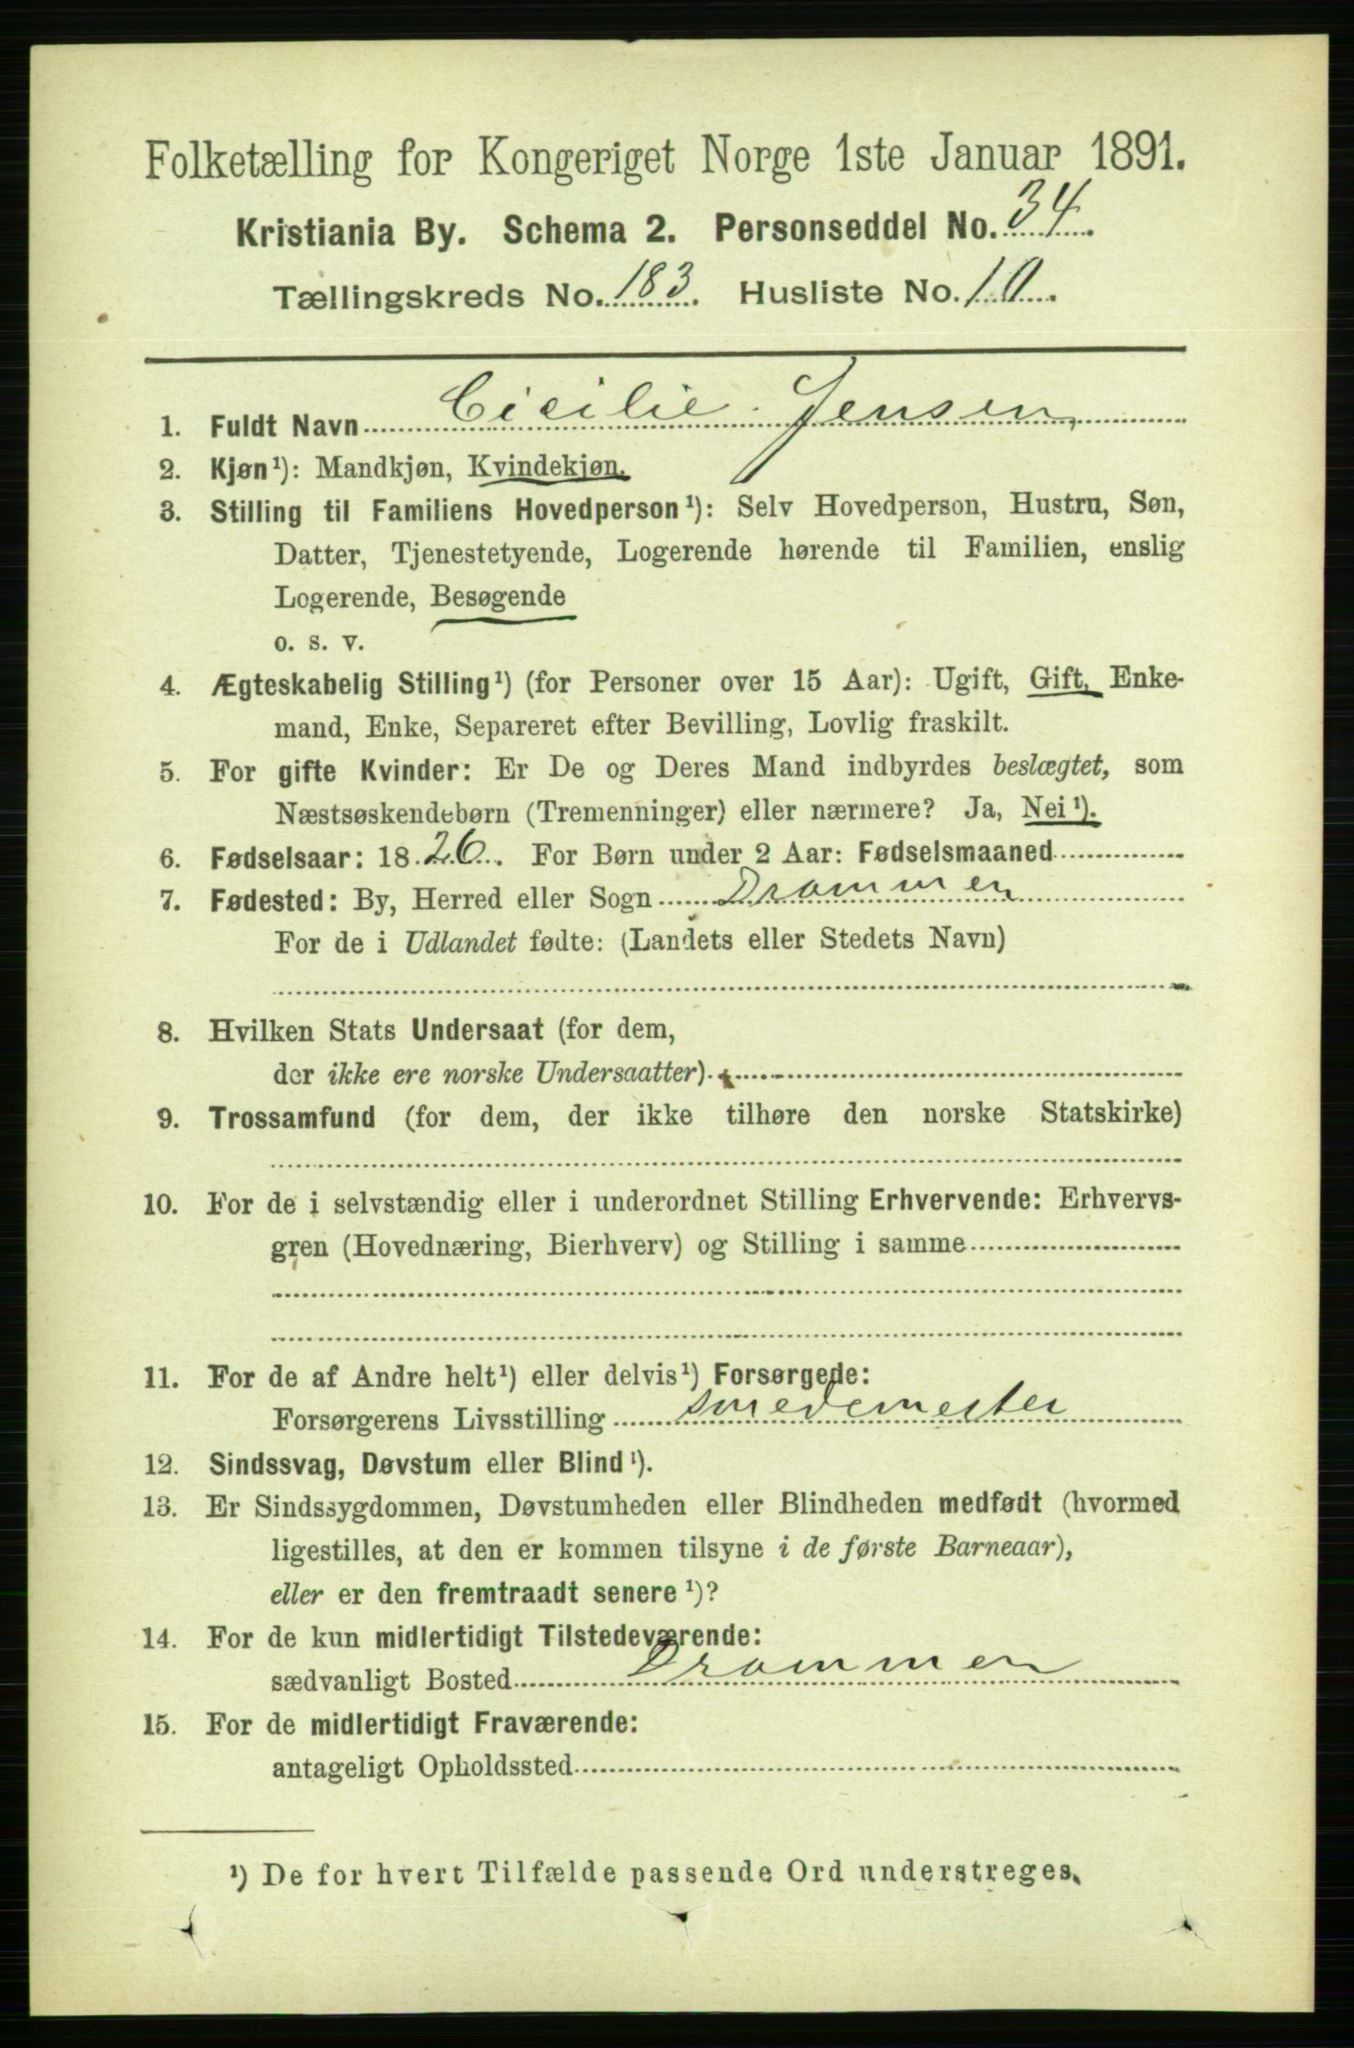 Folketælling for Kongeriget Norge 1ste Januar 1891.
Kristiania By. Schema 2. Personseddel No. 34.
Tællingskreds No. 183. Husliste No. 10.
1. Fuldt Navn Cicilie Jensen
2. Kjøn¹): Mandkjøn, Kvindekjøn.
3. Stilling til Familiens Hovedperson¹): Selv Hovedperson, Hustru, Søn,
Datter, Tjenestetyende, Logerende hørende til Familien, enslig
Logerende, Besøgende
o. s. v.
4. Ægteskabelig Stilling¹) (for Personer over 15 Aar): Ugift, Gift, Enke-
mand, Enke, Separeret efter Bevilling, Lovlig fraskilt.
5. For gifte Kvinder: Er De og Deres Mand indbyrdes beslægtet, som
Næstsøskendebørn (Tremenninger) eller nærmere? Ja, Nei¹).
6. Fødselsaar: 1826. For Børn under 2 Aar: Fødselsmaaned
7. Fødested: By, Herred eller Sogn Drammen
For de i Udlandet fødte: (Landets eller Stedets Navn)
8. Hvilken Stats Undersaat (for dem,
der ikke ere norske Undersaatter)
9. Trossamfund (for dem, der ikke tilhøre den norske Statskirke)
10. For de i selvstændig eller i underordnet Stilling Erhvervende: Erhvervs-
gren (Hovednæring, Bierhverv) og Stilling i samme
11. For de af Andre helt¹) eller delvis¹) Forsørgede:
Forsørgerens Livsstilling smedemester
12. Sindssvag, Døvstum eller Blind¹).
13. Er Sindssygdommen, Døvstumheden eller Blindheden medfødt (hvormed
ligestilles, at den er kommen tilsyne i de første Barneaar),
eller er den fremtraadt senere¹)?
14. For de kun midlertidigt Tilstedeværende:
sædvanligt Bosted Drammen
15. For de midlertidigt Fraværende:
antageligt Opholdssted
¹) De for hvert Tilfælde passende Ord understreges.